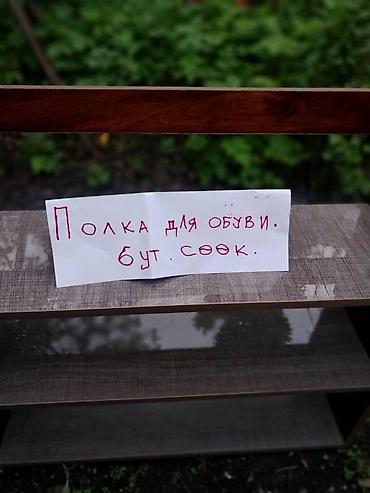 ПОЛКА ДЛЯ ОБУВИ.
бут. сөөк.